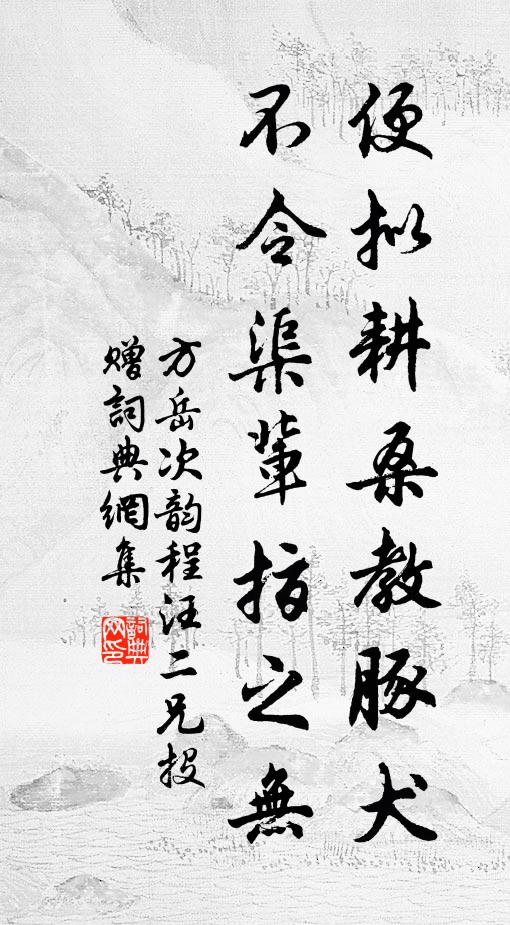 便拟耕桑教豚犬
不令渠輩指之無
方岳次韵程汪二兄投
贈詞典網集
詞典
网印